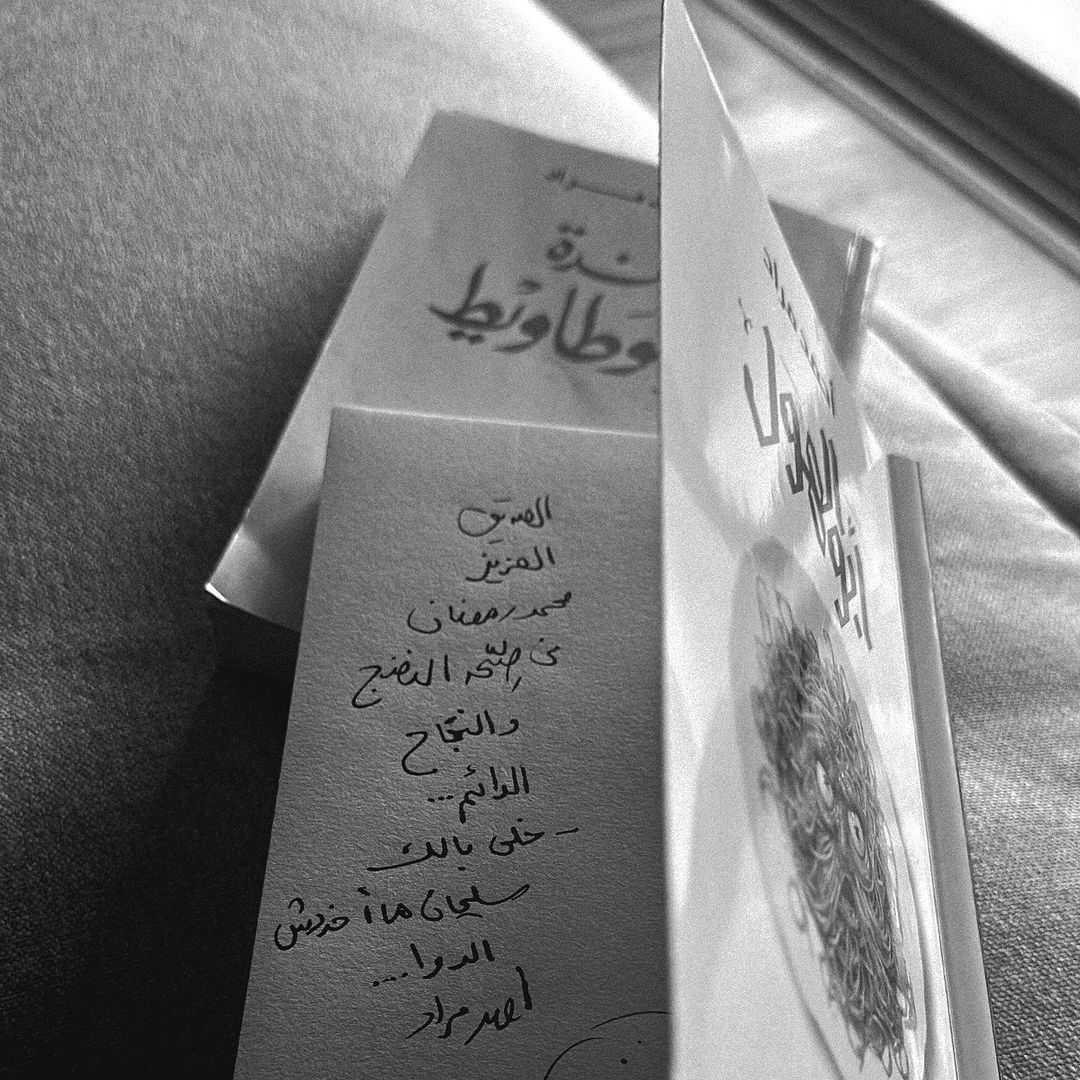 مراد
ندة
وطاويط
أبو الهول
الصديق
العزيز
محمد رمضان
فى صِحّة النضج
والنجاح
الدائم...
- خلى بالك
سليمان ما أخدش
الدوا....
أحمد مراد